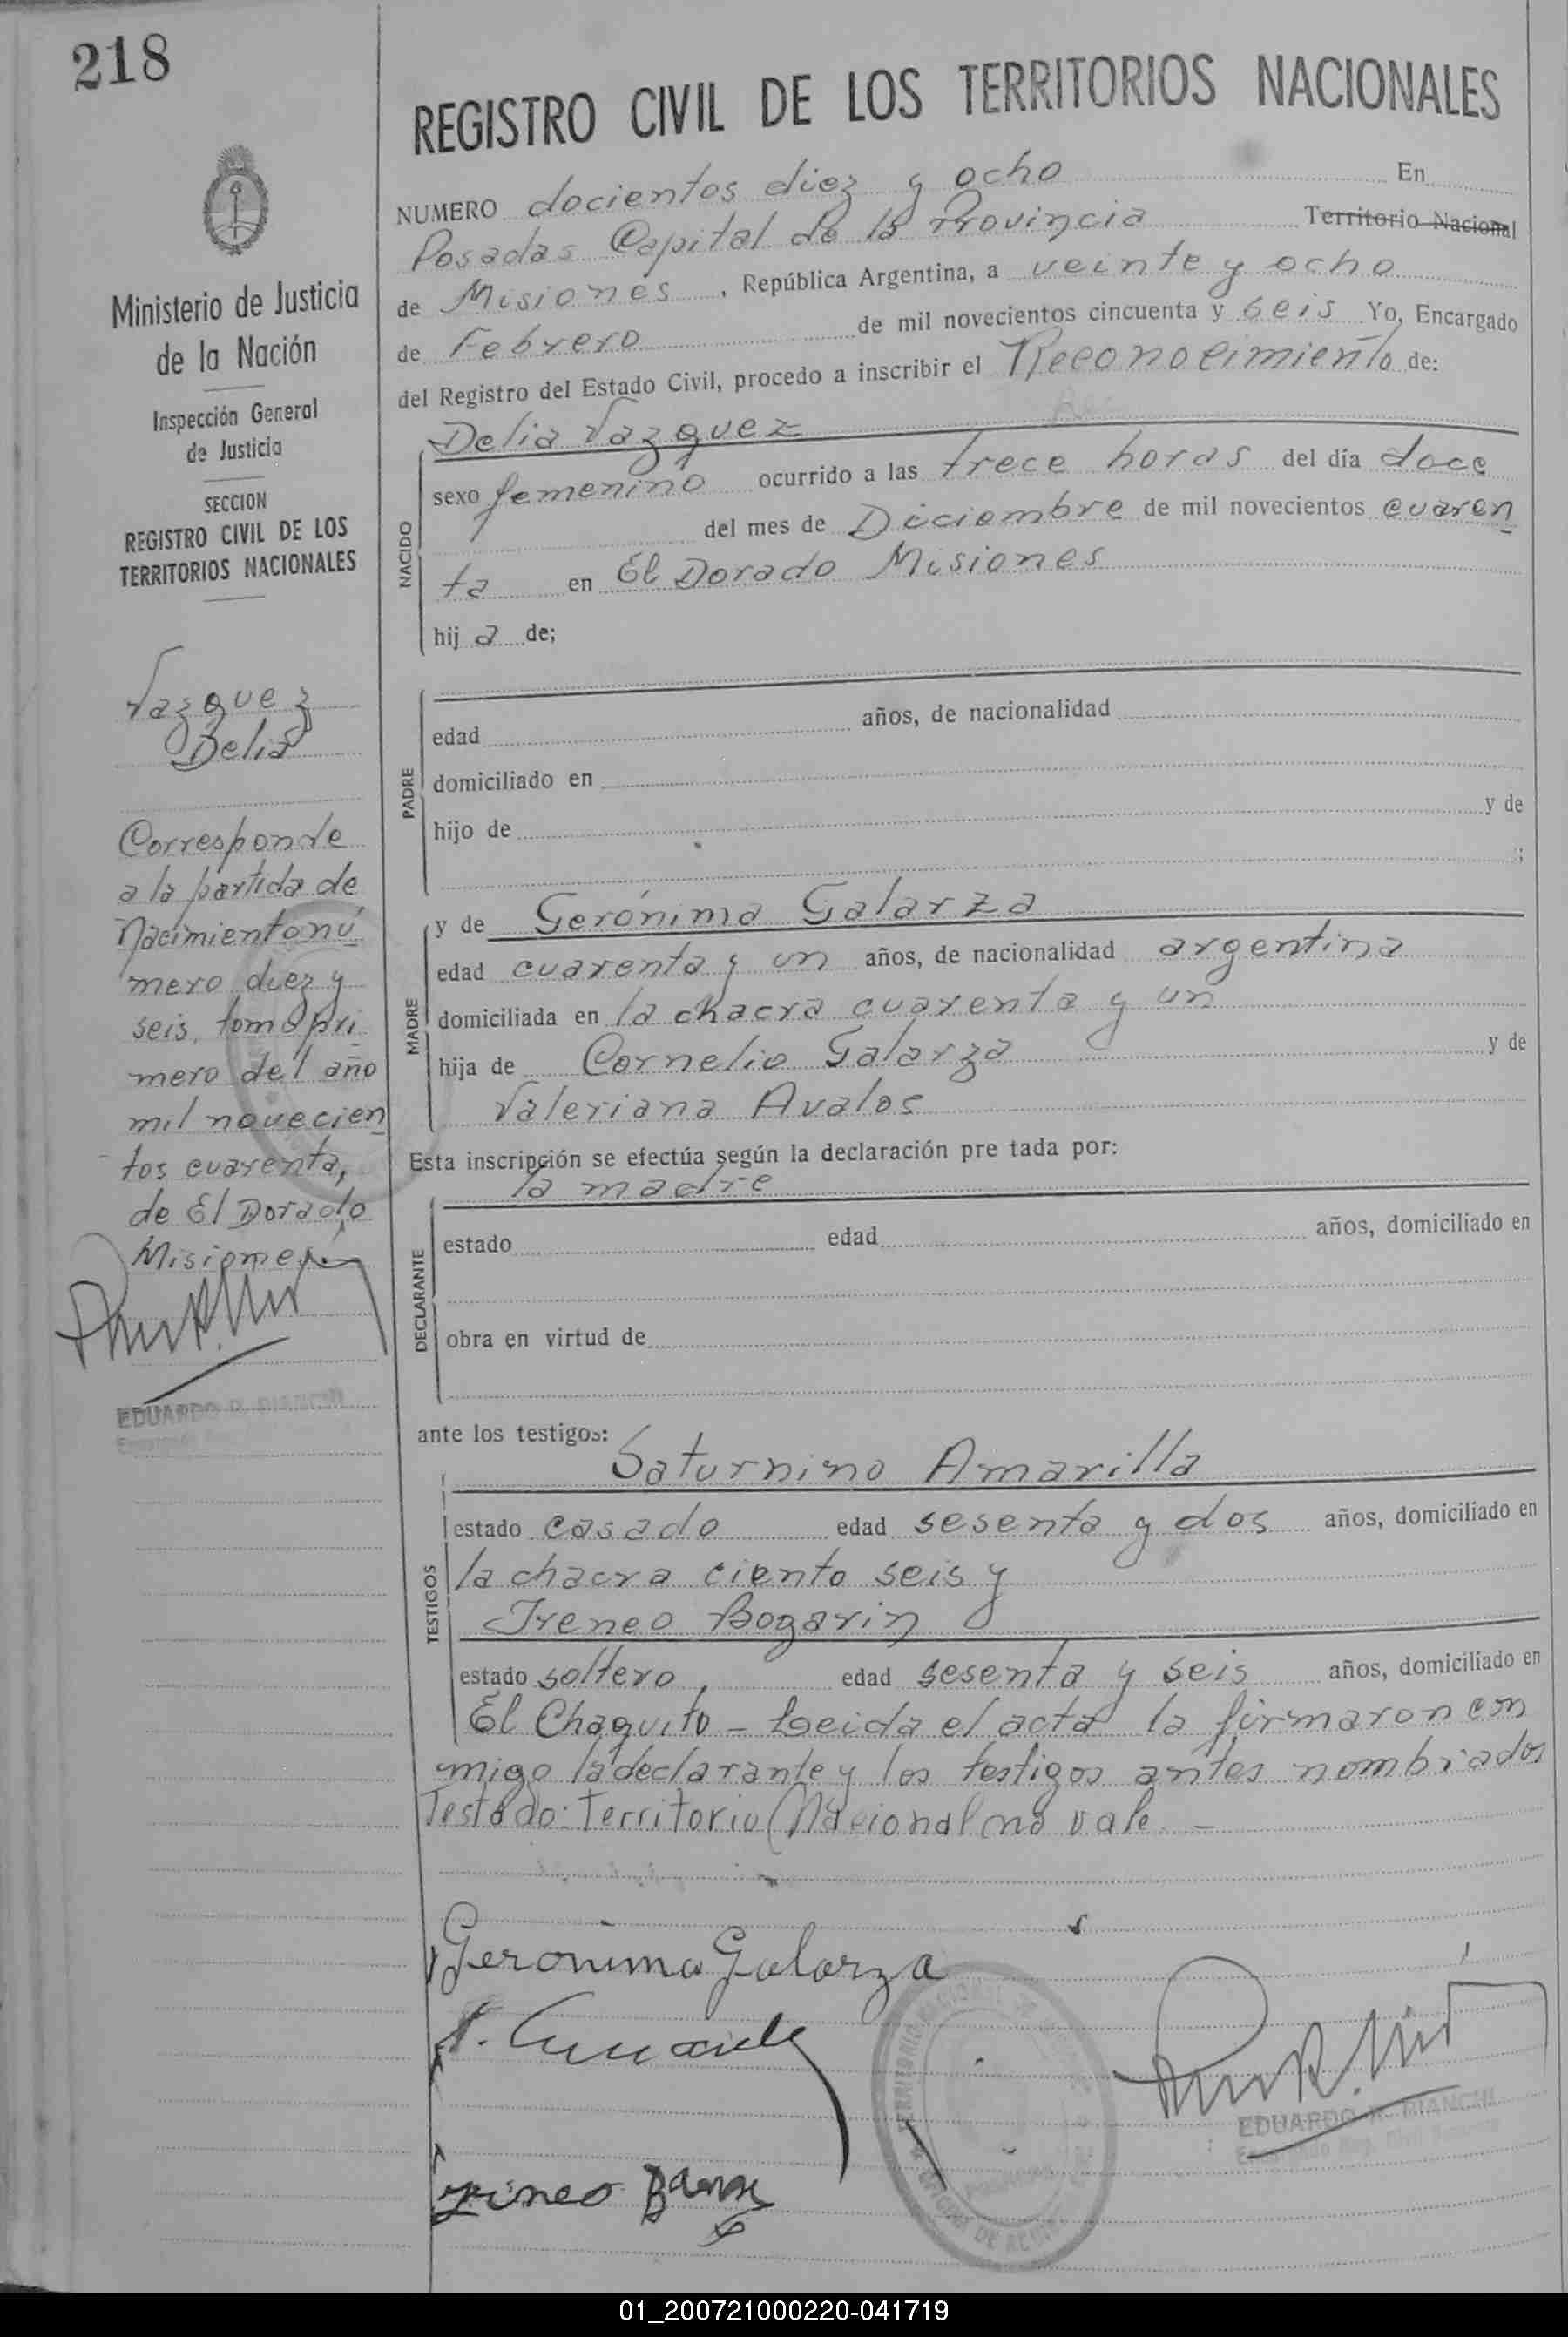 218
Ministerio de Justicia
de la Nación
Inspección General
de Justicia
SECCION
REGISTRO CIVIL DE LOS
TERRITORIOS NACIONALES
Vazquez
Delia
Corresponde
a la partida de
Nacimiento nú
mero diez y
seis, tomo pri
mero del año
mil novecien
tos cuarenta,
de El Dorado
Misiones
EDUARDO R. BIANCHI
REGISTRO CIVIL DE LOS TERRITORIOS NACIONALES
NUMERO docientos diez y ocho En
Posadas Capital de la Provincia Territorio Nacional
de Misiones, República Argentina, a veinte y ocho
de Febrero de mil novecientos cincuenta y seis Yo, Encargado
del Registro del Estado Civil, procedo a inscribir el Reconocimiento de:
Delia Vazquez
NACIDO
sexo femenino ocurrido a las trece horas del día doce
del mes de Diciembre de mil novecientos cuaren
ta en El Dorado Misiones
hij a de;
PADRE
edad años, de nacionalidad
domiciliado en
hijo de y de
;
MADRE
y de Gerónima Galarza
edad cuarenta y un años, de nacionalidad argentina
domiciliada en la chacra cuarenta y un
hija de Cornelio Galarza y de
Valeriana Avalos
Esta inscripción se efectúa según la declaración pre tada por:
la madre
DECLARANTE
estado edad años, domiciliado en
obra en virtud de
ante los testigos:
Saturnino Amarilla
TESTIGOS
estado casado edad sesenta y dos años, domiciliado en
la chacra ciento seis y
Ireneo Bogarin
estado soltero, edad sesenta y seis años, domiciliado en
El Chaquito - Leida el acta la firmaron con
migo la declarante y los testigos antes nombrados
Testado: Territorio Nacional no vale. -
Geronima Galarza
EDUARDO R. BIANCHI
01_200721000220-041719